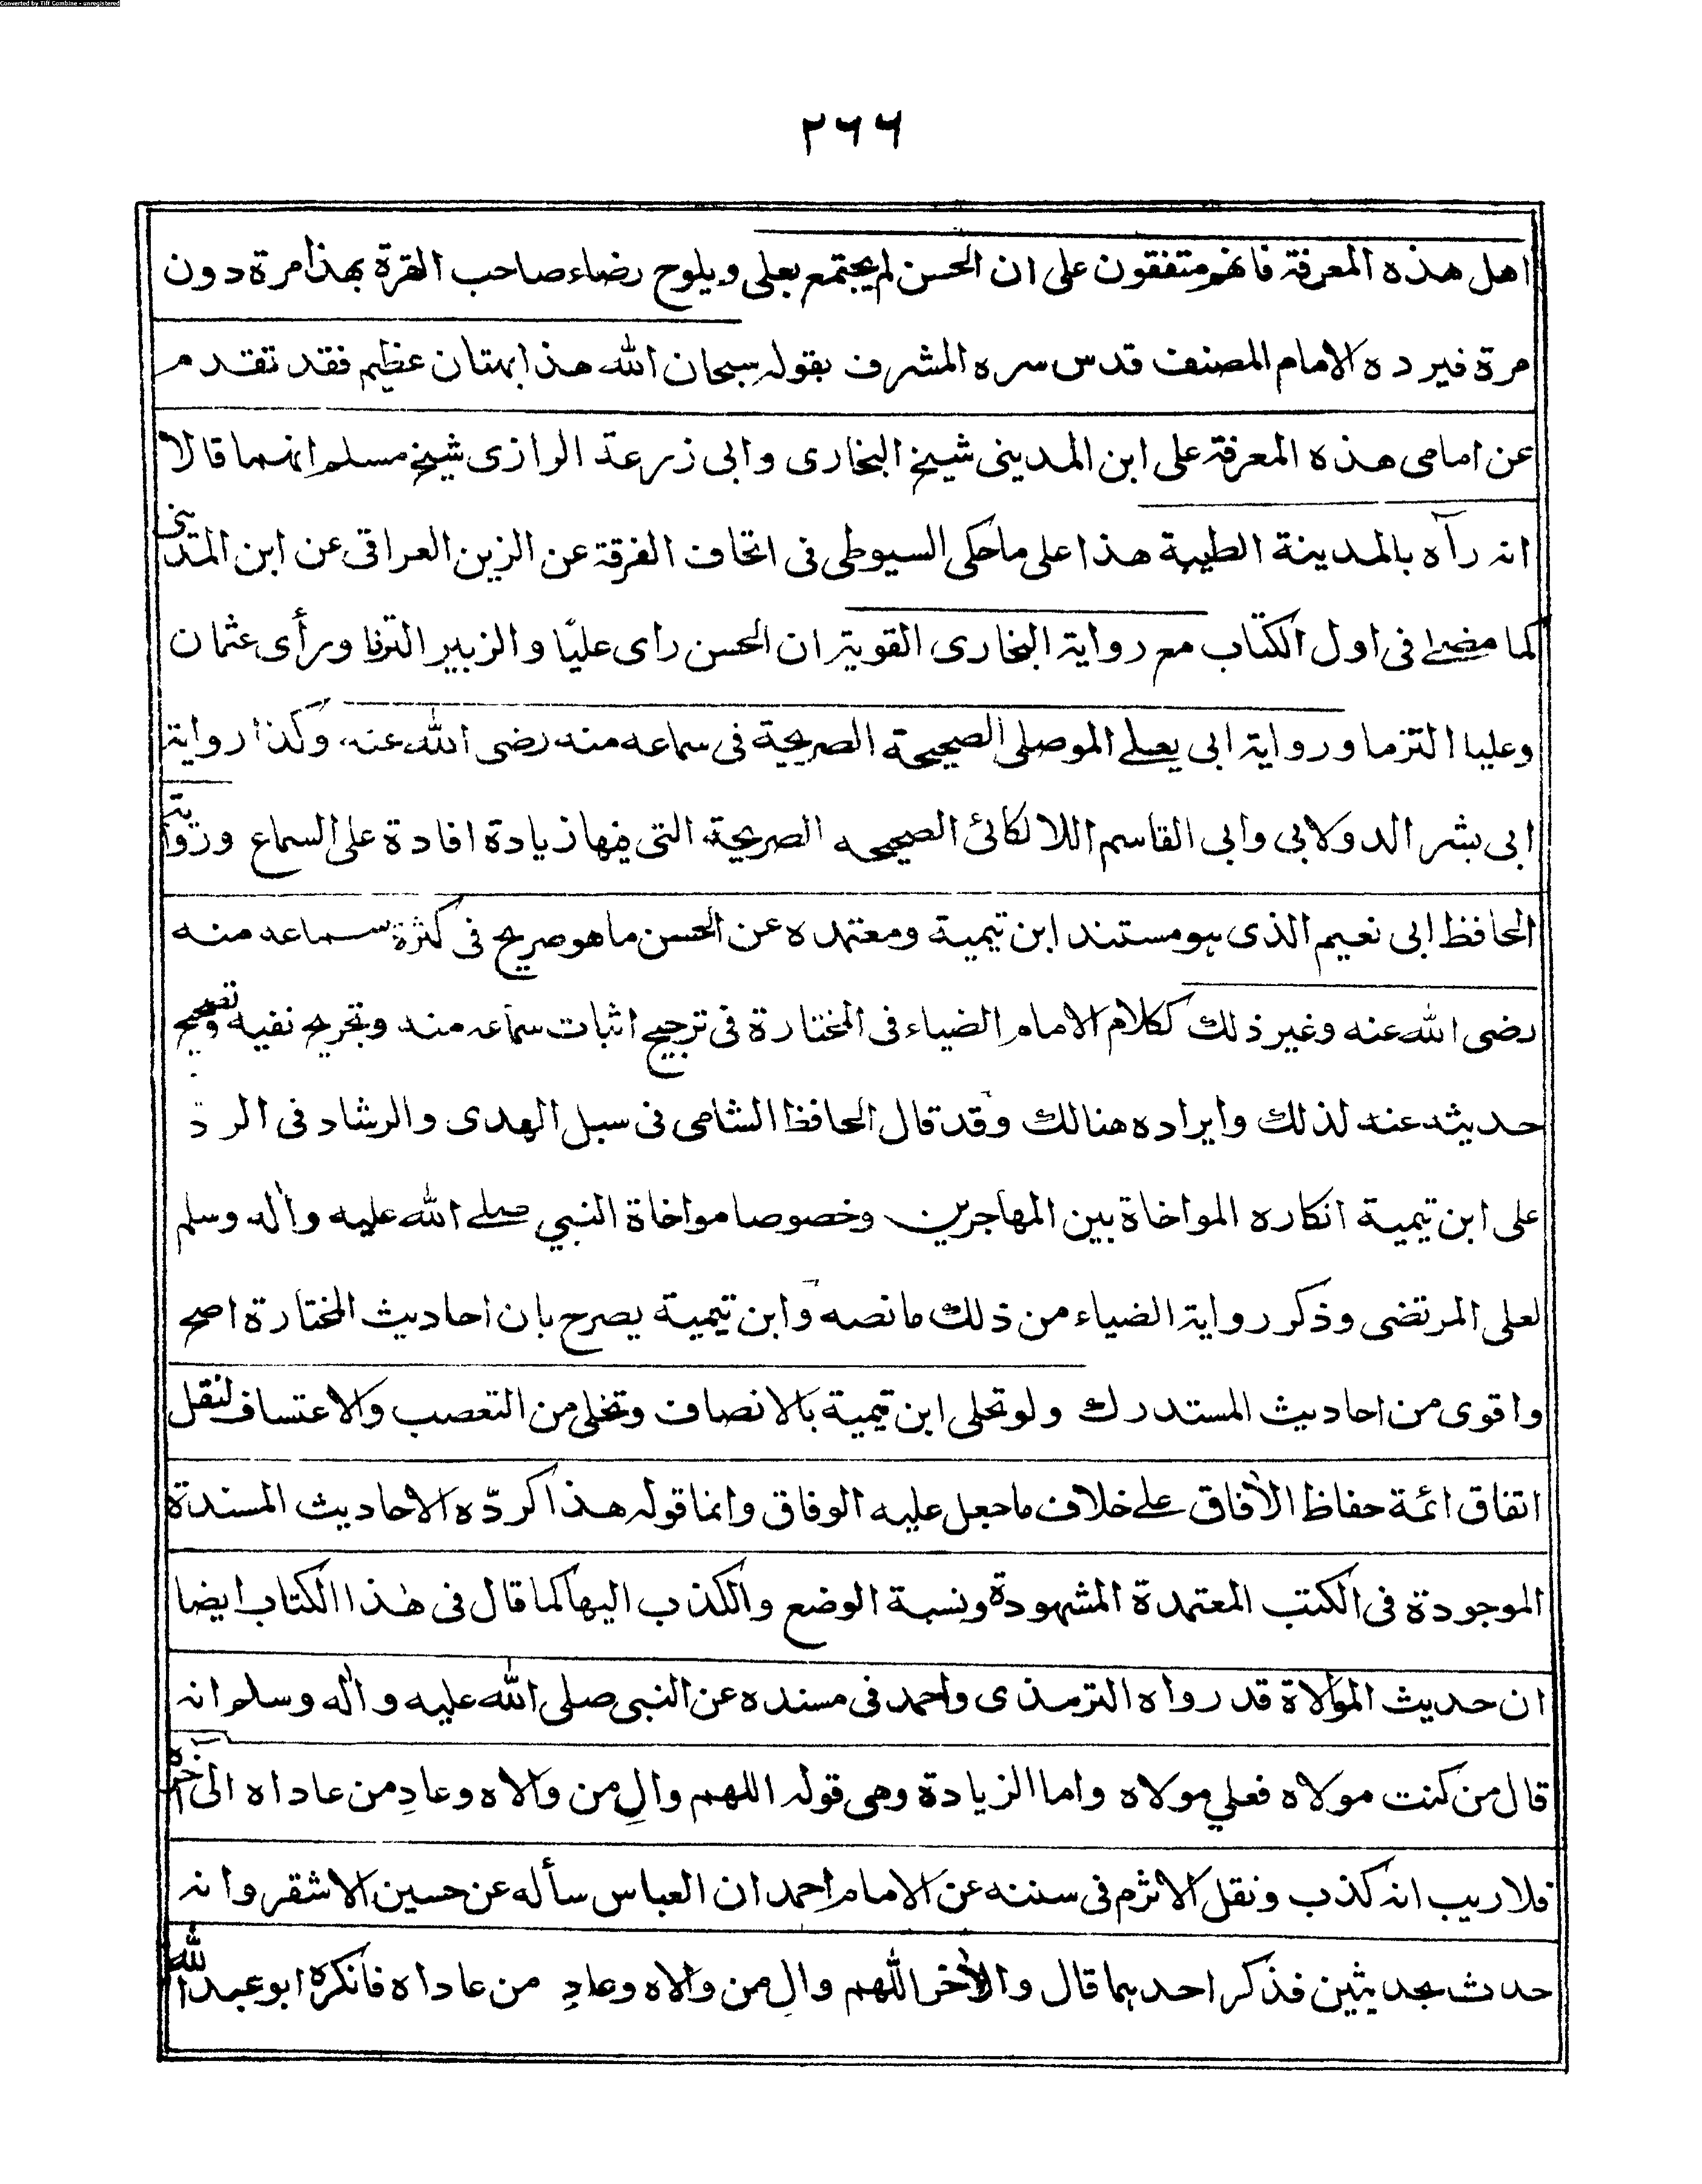 Converted by Tiff Combine - unregistered
۲۶۶
اهل هذه المعرفة فانهم متفقون على ان الحسن لم يجتمع بعلى ويلوح رضاء صاحب القرة بهذا مرة دون
مرة فيرده الامام المصنف قدس سره المشرف بقوله سبحان الله هذا بهتان عظيم فقد تقدم
عن امامى هذه المعرفة على ابن المدينى شيخ البخارى وابى زرعة الرازى شيخ مسلم انهما قالا
انه رآه بالمدينة الطيبة هذا على ما حكى السيوطى فى اتحاف الفرقة عن الزين العراقى عن ابن المدينى
كما مضى فى اول الكتاب مع رواية البخارى القوية ان الحسن راى عليّا والزبير التزما ورأى عثمان
وعليا التزما ورواية ابى يعلى الموصلى الصحيحة الصريحة فى سماعه منه رضى الله عنه وكذا رواية
ابى بشر الدولابى وابى القاسم اللالكائى الصحيحه الصريحة التى فيها زيادة افادة على السماع ورواية
الحافظ ابى نعيم الذى هو مستند ابن تيمية ومعتمده عن الحسن ما هو صريح فى كثرة سماعه منه
رضى الله عنه وغير ذلك ككلام الامام الضياء فى المختارة فى ترجيح اثبات سماعه منه وتجريح نفيه وتصحيح
حديثه عنه لذلك وايراده هنالك وقد قال الحافظ الشامى فى سبل الهدى والرشاد فى الرد
على ابن تيمية انكاره المواخاة بين المهاجرين وخصوصا مواخاة النبي صلے الله عليه واله وسلم
لعلى المرتضى وذكر رواية الضياء من ذلك ما نصه وابن تيمية يصرح بان احاديث المختارة اصح
واقوى من احاديث المستدرك ولو تحلى ابن تيمية بالانصاف وتخلى من التعصب والاعتساف لنقل
اتفاق ائمة حفاظ الآفاق على خلاف ما جعل عليه الوفاق وانما قوله هذا كردّه الاحاديث المسندة
الموجودة فى الكتب المعتمدة المشهودة ونسبة الوضع والكذب اليها كما قال فى هذا الكتاب ايضا
ان حديث الموالاة قد رواه الترمذى واحمد فى مسنده عن النبى صلى الله عليه واله وسلم انه
قال من كنت مولاه فعلي مولاه واما الزيادة وهى قوله اللهم والِ من والاه وعادِ من عاداه الى آخره
فلا ريب انه كذب ونقل الاثرم فى سننه عن الامام احمد ان العباس سأله عن حسين الاشقر وانه
حدث بحديثين فذكر احدهما قال والآخر اللهم والِ من والاه وعادِ من عاداه فانكره ابو عبد الله